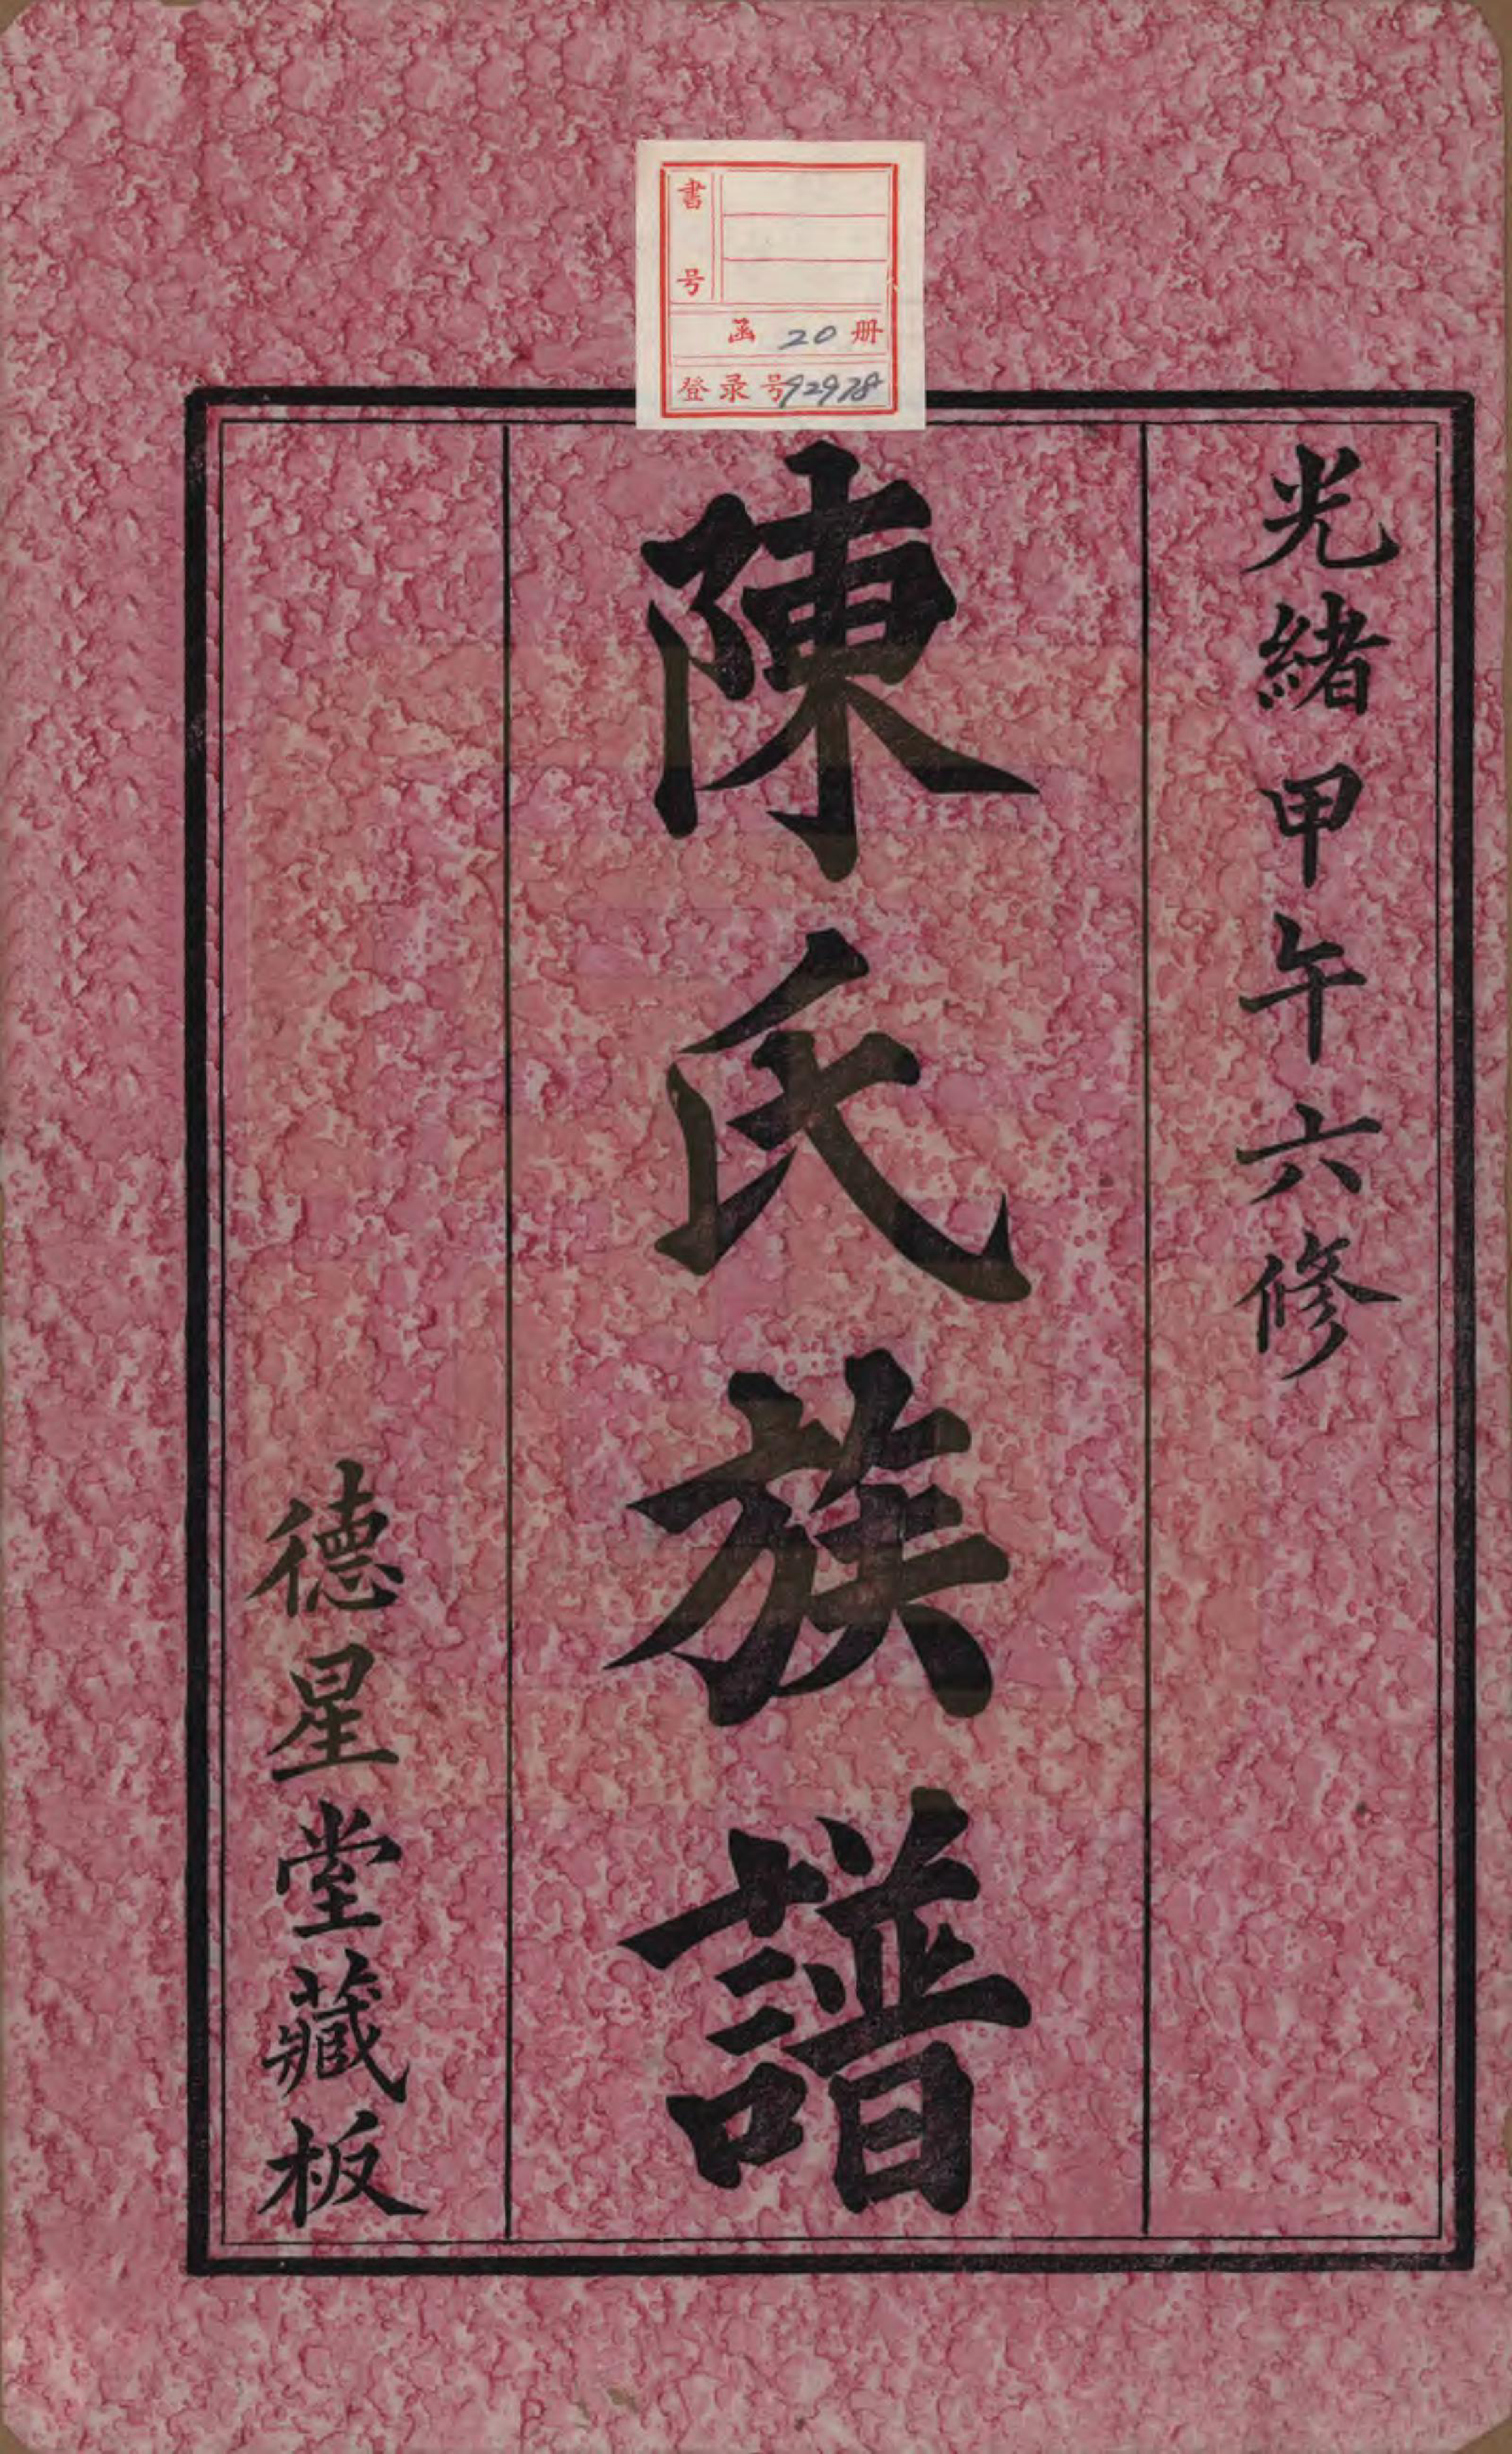 書号
函 20 册
登录号 92978
光緒甲午六修
陳氏族譜
德星堂藏板